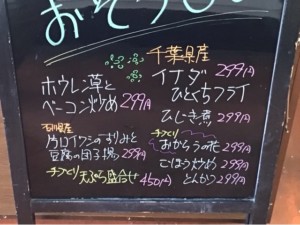 おそうざい
千葉県産
イナダ 299円
ひとくちフライ
ひじき煮 299円
手づくり
おからうの花 299円
ごぼう炒め 299円
とんかつ 299円
ホウレン草と
ベーコン炒め 299円
石川県産
片口イワシのすりみと
豆腐の団子揚 299円
手づくり 天ぷら盛合せ 450円